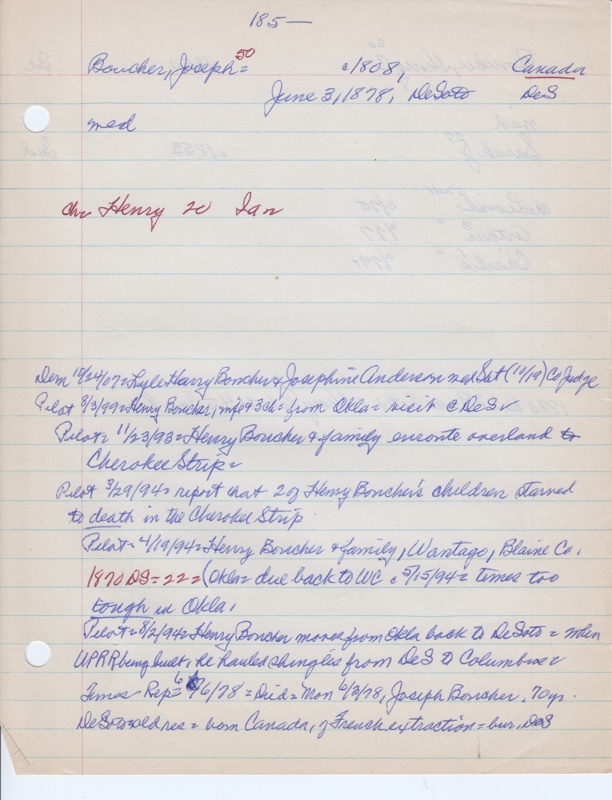 185—
Boucher, Joseph = 50 c1808, Canada
June 3, 1878, DeSoto DeS
med
ch Henry 20 Ian
Dem 10/24/07 = Lyle Harry Boucher & Josephine Anderson med Sat (10/19) Co Judge
Pilot 8/3/99 = Henry Boucher, wife & 3 ch = from Okla = visit c DeS
Pilot = 11/23/93 = Henry Boucher & family enroute overland to
Cherokee Strip =
Pilot 3/29/94 = report that 2 of Henry Boucher's children starved
to death in the Cherokee Strip
Pilot = 4/19/94 = Henry Boucher & family, Wantago, Blaine Co,
1870 DS = 22 = (Okla = due back to WC c 5/15/94 = times too
tough in Okla,
Pilot = 8/2/94 = Henry Boucher moves from Okla back to DeSoto = when
UPRR being built, he hauled shingles from DeS to Columbus =
Times-Rep = 6/6/78 = Died = Mon 6/3/78, Joseph Boucher, 70 yr.
DeSoto old res = born Canada, of French extraction = bur. DeS